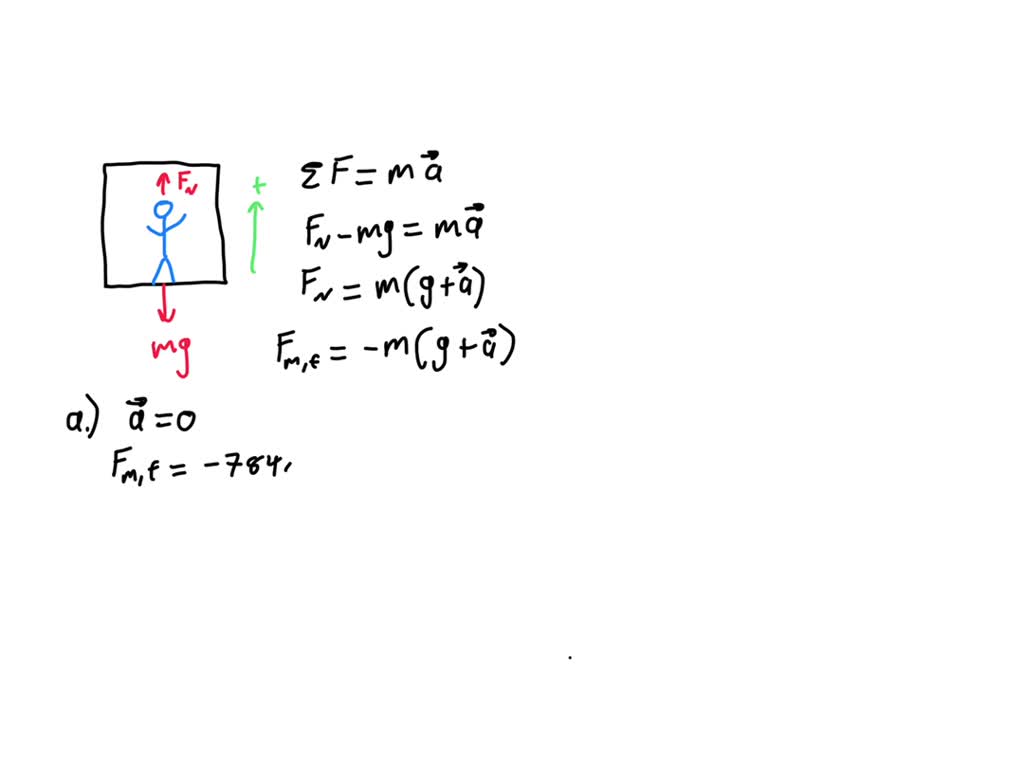 F_N
+
mg
ΣF = ma⃗
F_N - mg = ma⃗
F_N = m(g + a⃗)
F_m,f = -m(g + a⃗)
a.) a⃗ = 0
F_m,f = -784